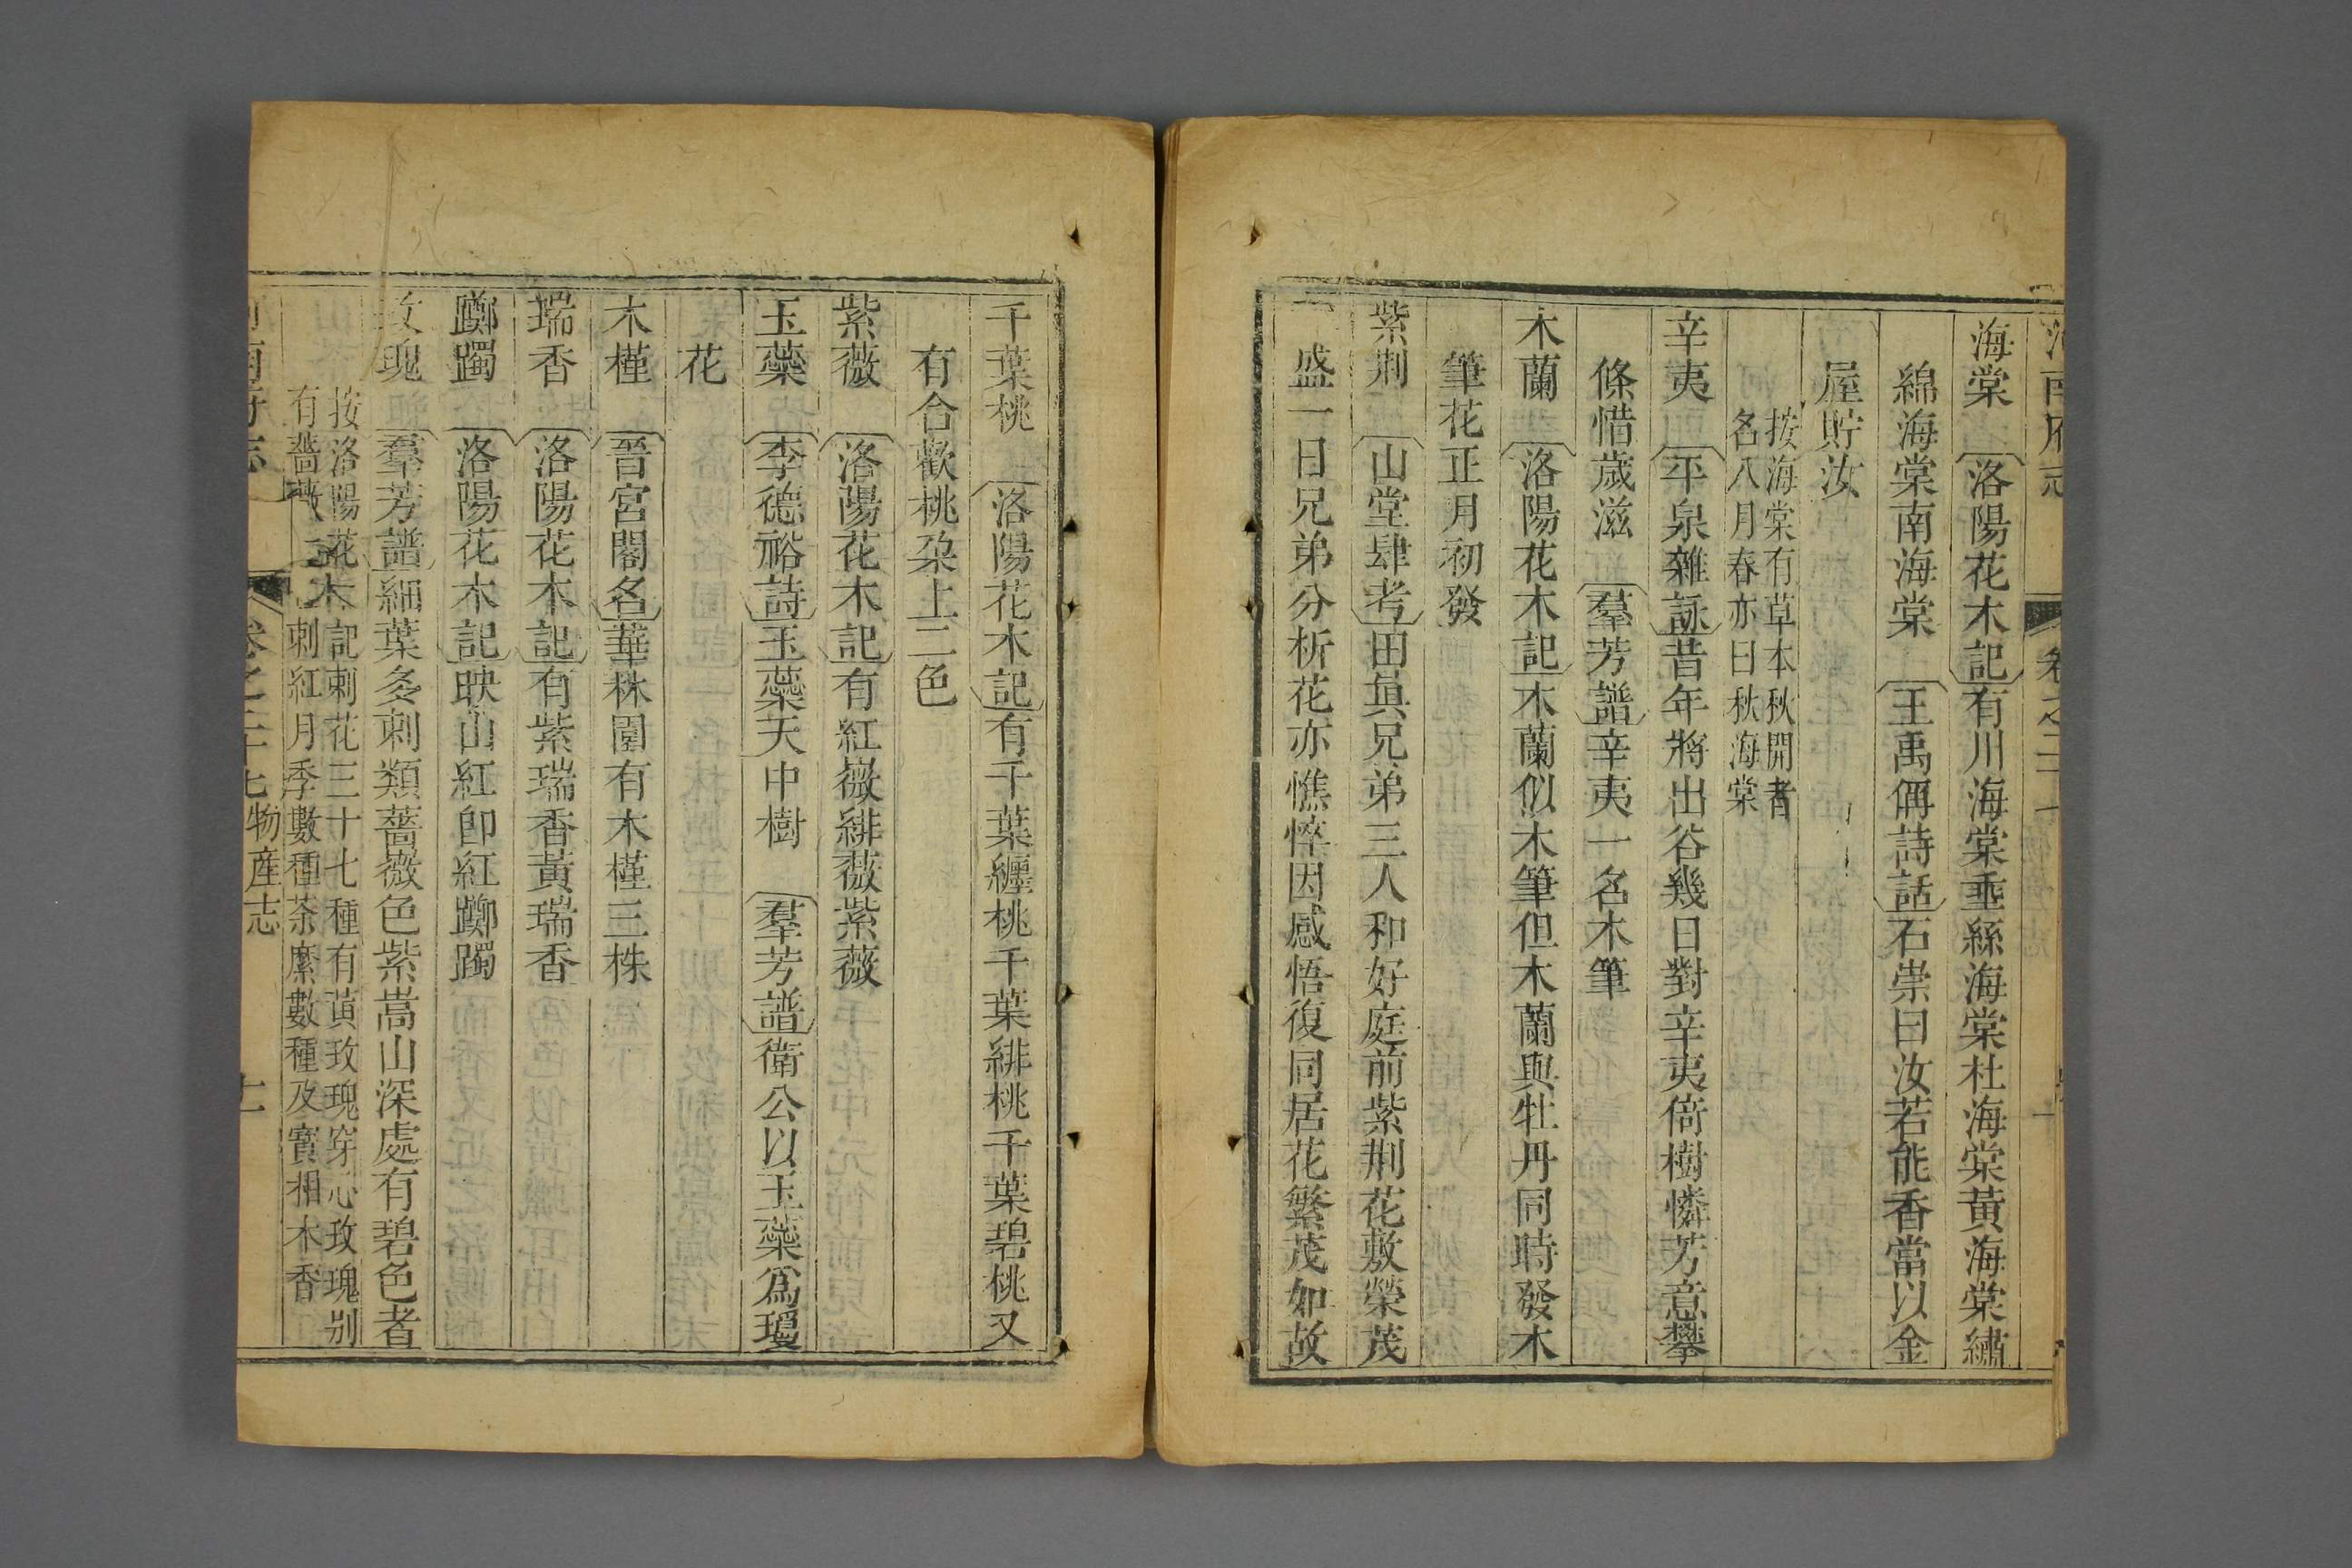 河南府志 卷之二十七
海棠 洛陽花木記有川海棠垂絲海棠杜海棠黃海棠繡
綿海棠南海棠 王禹偁詩話石崇曰汝若能香當以金
屋貯汝
按海棠有草本秋開者
名八月春亦曰秋海棠
辛夷 平泉雜詠昔年將出谷幾日對辛夷倚樹憐芳意攀
條惜歲滋 羣芳譜辛夷一名木筆
木蘭 洛陽花木記木蘭似木筆但木蘭與牡丹同時發木
筆花正月初發
紫荆 山堂肆考田眞兄弟三人和好庭前紫荆花敷榮茂
盛一日兄弟分析花亦憔悴因感悟復同居花繁茂如故
千葉桃 洛陽花木記有千葉纏桃千葉緋桃千葉碧桃又
有合歡桃朶上二色
紫薇 洛陽花木記有紅薇緋薇紫薇
玉蘂 李德裕詩玉蘂天中樹 羣芳譜衛公以玉蘂爲瓊
花
木槿 晉宮閣名華林園有木槿三株
瑞香 洛陽花木記有紫瑞香黃瑞香
躑躅 洛陽花木記映山紅卽紅躑躅
玫瑰 羣芳譜細葉多刺類薔薇色紫嵩山深處有碧色者
按洛陽花木記刺花三十七種有黃玫瑰穿心玫瑰别
有薔薇二刺紅月季數種荼縻數種及寶相木香
河南府志 卷之二十七物産志 十一